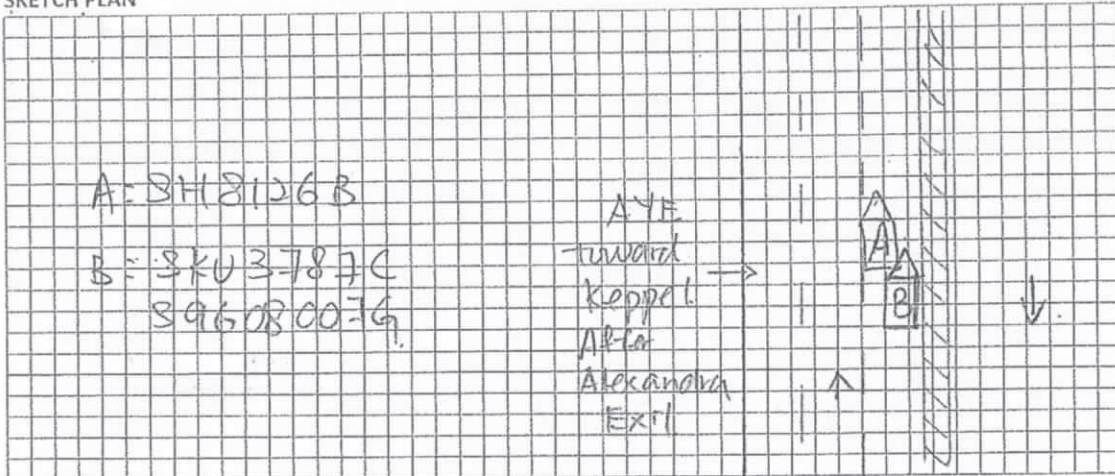 SKETCH PLAN
A = SH8126B
B = SKU3787C
S9608007G
AYE
toward
Keppel
After
Alexandra
Exit
A
B